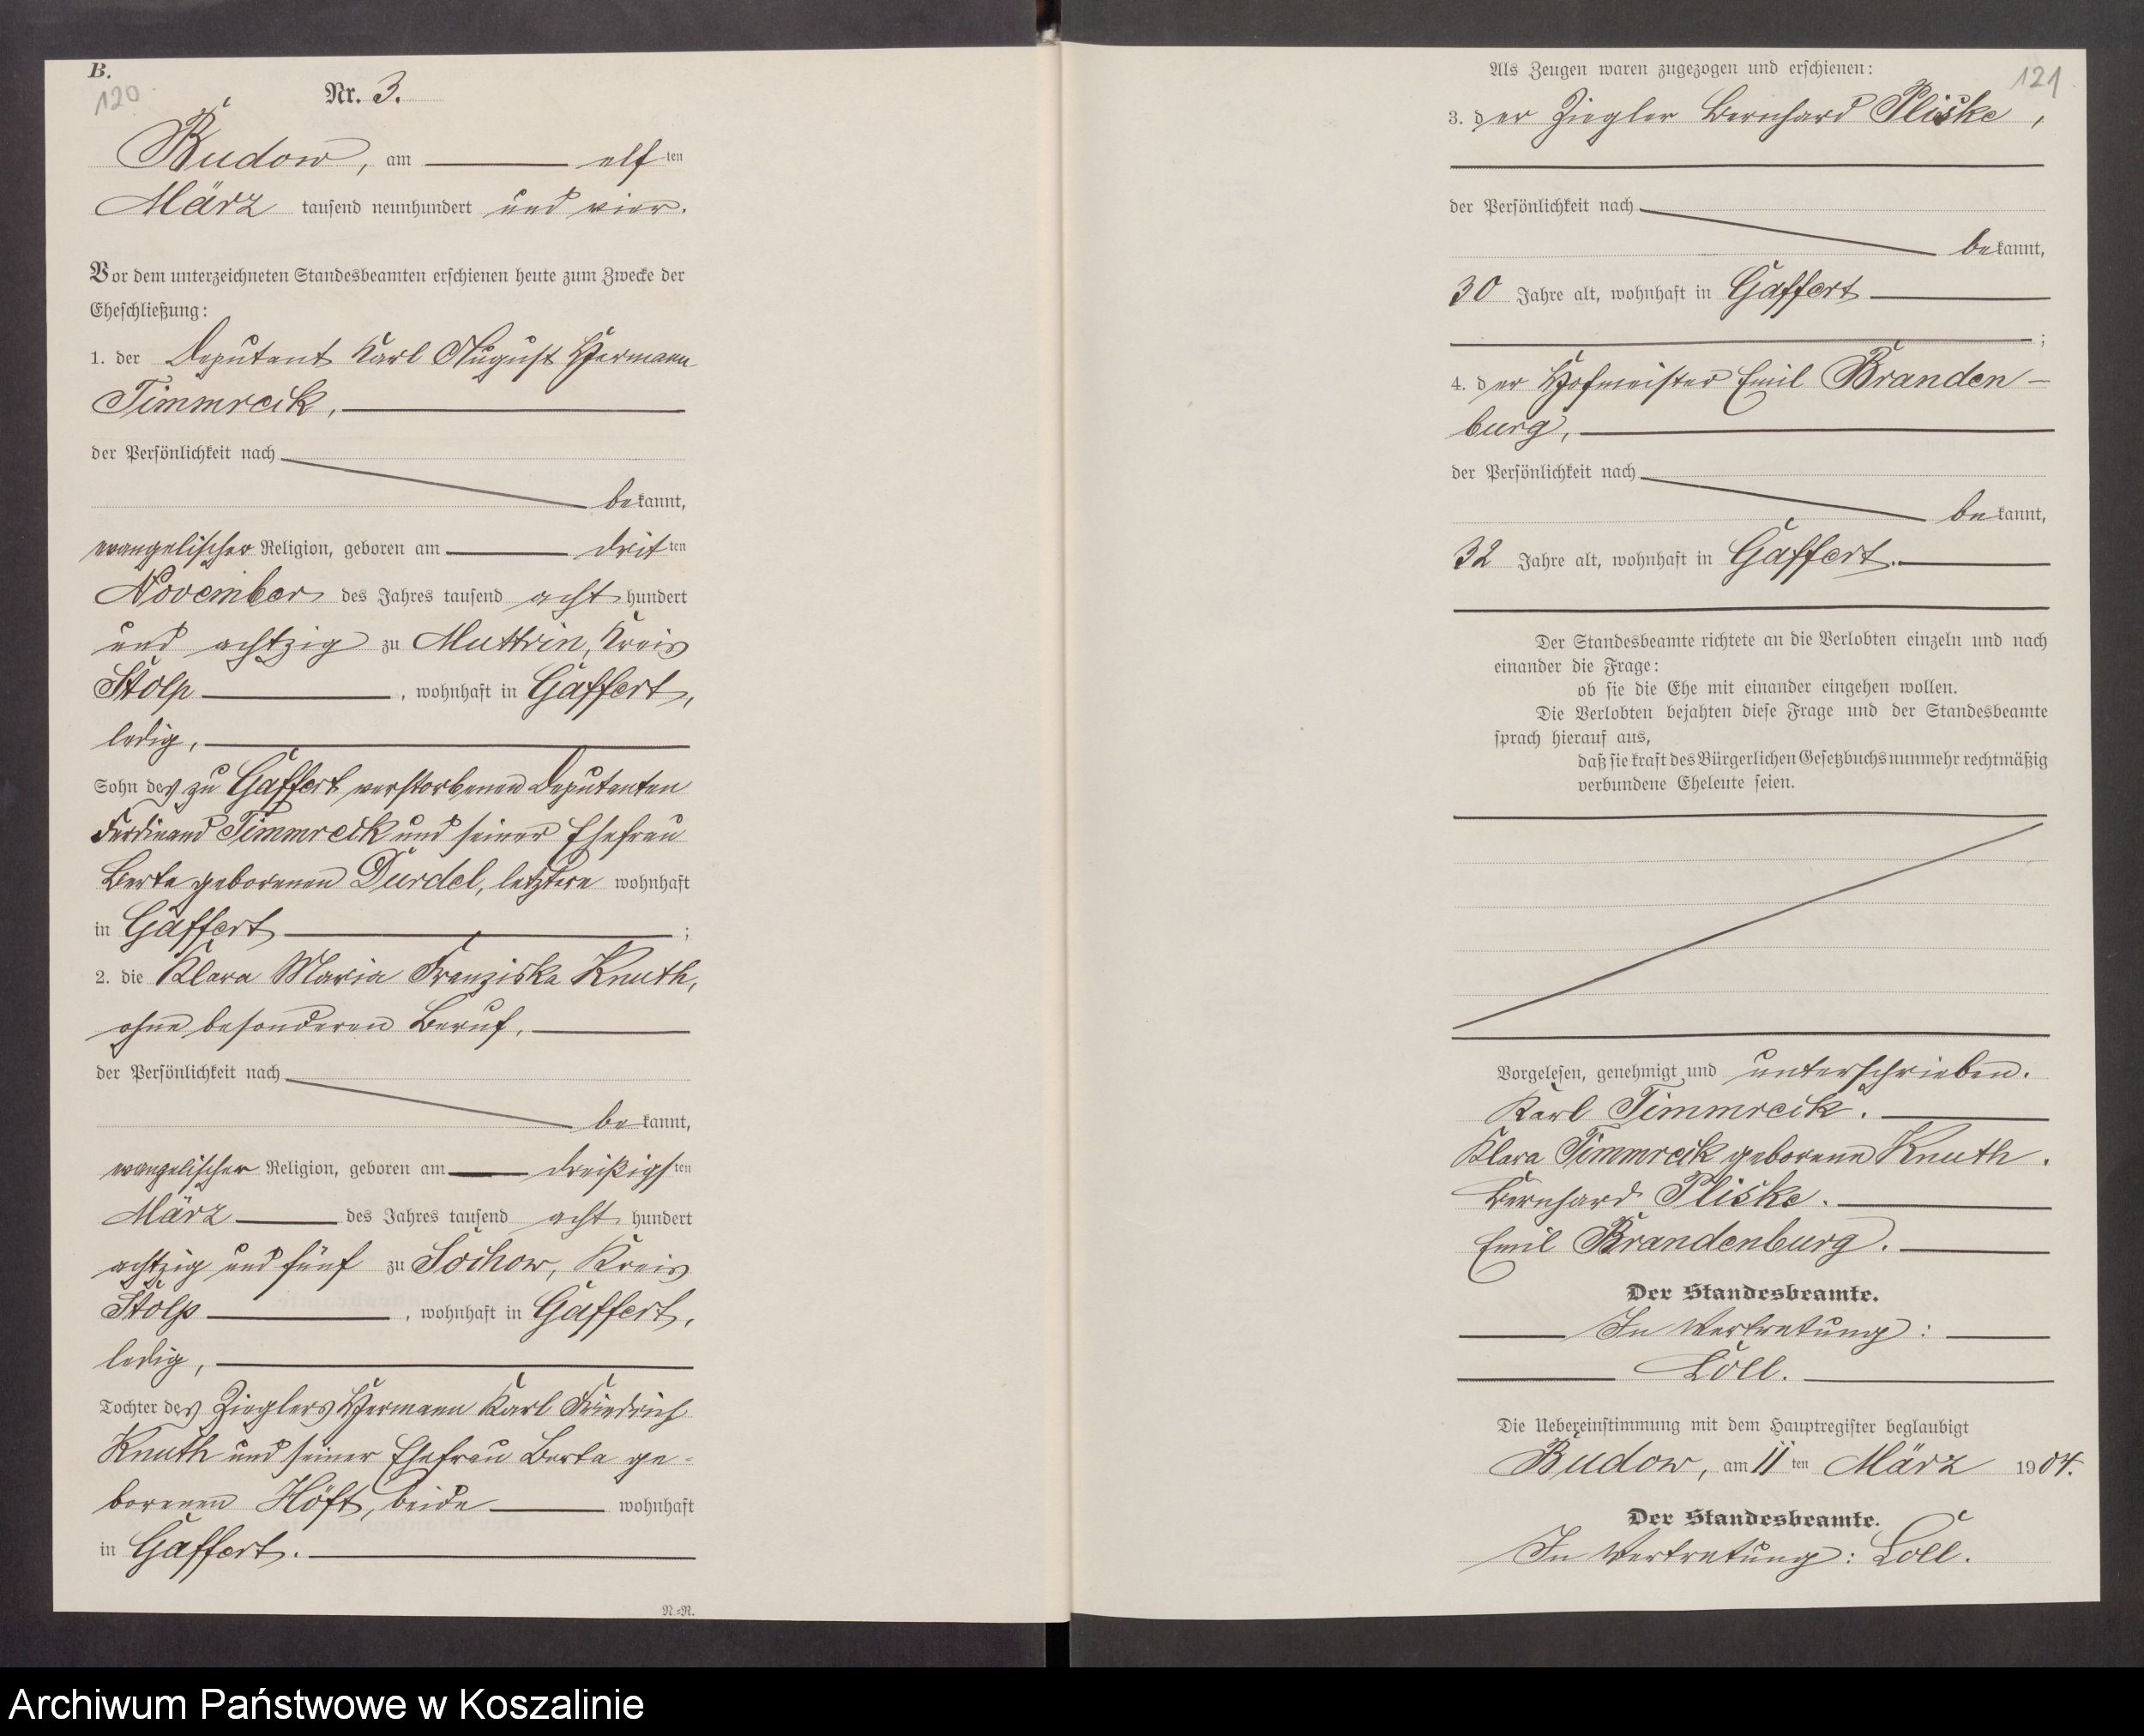 B.
120
Nr. 3.
Budow, am elf ten
März tausend neunhundert und vier.
Vor dem unterzeichneten Standesbeamten erschienen heute zum Zwecke der
Eheschließung:
1. der Deputant Karl August Hermann
Timmreck,
der Persönlichkeit nach
bekannt,
evangelischer Religion, geboren am drit ten
November des Jahres tausend acht hundert
und achtzig zu Muttrin, Kreis
Stolp, wohnhaft in Gaffert,
ledig,
Sohn des zu Gaffert verstorbenen Deputanten
Ferdinand Timmreck und seiner Ehefrau
Berta geborenen Durdel, letztere wohnhaft
in Gaffert;
2. die Klara Maria Franziska Knuth,
ohne besonderen Beruf,
der Persönlichkeit nach
bekannt,
evangelischer Religion, geboren am dreißigs ten
März des Jahres tausend acht hundert
achtzig und fünf zu Sochow, Kreis
Stolp, wohnhaft in Gaffert,
ledig,
Tochter des Zieglers Hermann Karl Friedrich
Knuth und seiner Ehefrau Berta ge-
borenen Höft, beide wohnhaft
in Gaffert.
N.=N.
121
Als Zeugen waren zugezogen und erschienen:
3. der Ziegler Bernhard Pliske,
der Persönlichkeit nach
bekannt,
30 Jahre alt, wohnhaft in Gaffert
;
4. der Hofmeister Emil Branden-
burg,
der Persönlichkeit nach
bekannt,
32 Jahre alt, wohnhaft in Gaffert.
Der Standesbeamte richtete an die Verlobten einzeln und nach
einander die Frage:
ob sie die Ehe mit einander eingehen wollen.
Die Verlobten bejahten diese Frage und der Standesbeamte
sprach hierauf aus,
daß sie kraft des Bürgerlichen Gesetzbuchs nunmehr rechtmäßig
verbundene Eheleute seien.
Vorgelesen, genehmigt und unterschrieben.
Karl Timmreck.
Klara Timmreck geborene Knuth.
Bernhard Pliske.
Emil Brandenburg.
Der Standesbeamte.
In Vertretung:
Loll.
Die Uebereinstimmung mit dem Hauptregister beglaubigt
Budow, am 11 ten März 1904.
Der Standesbeamte.
In Vertretung: Loll.
Archiwum Państwowe w Koszalinie